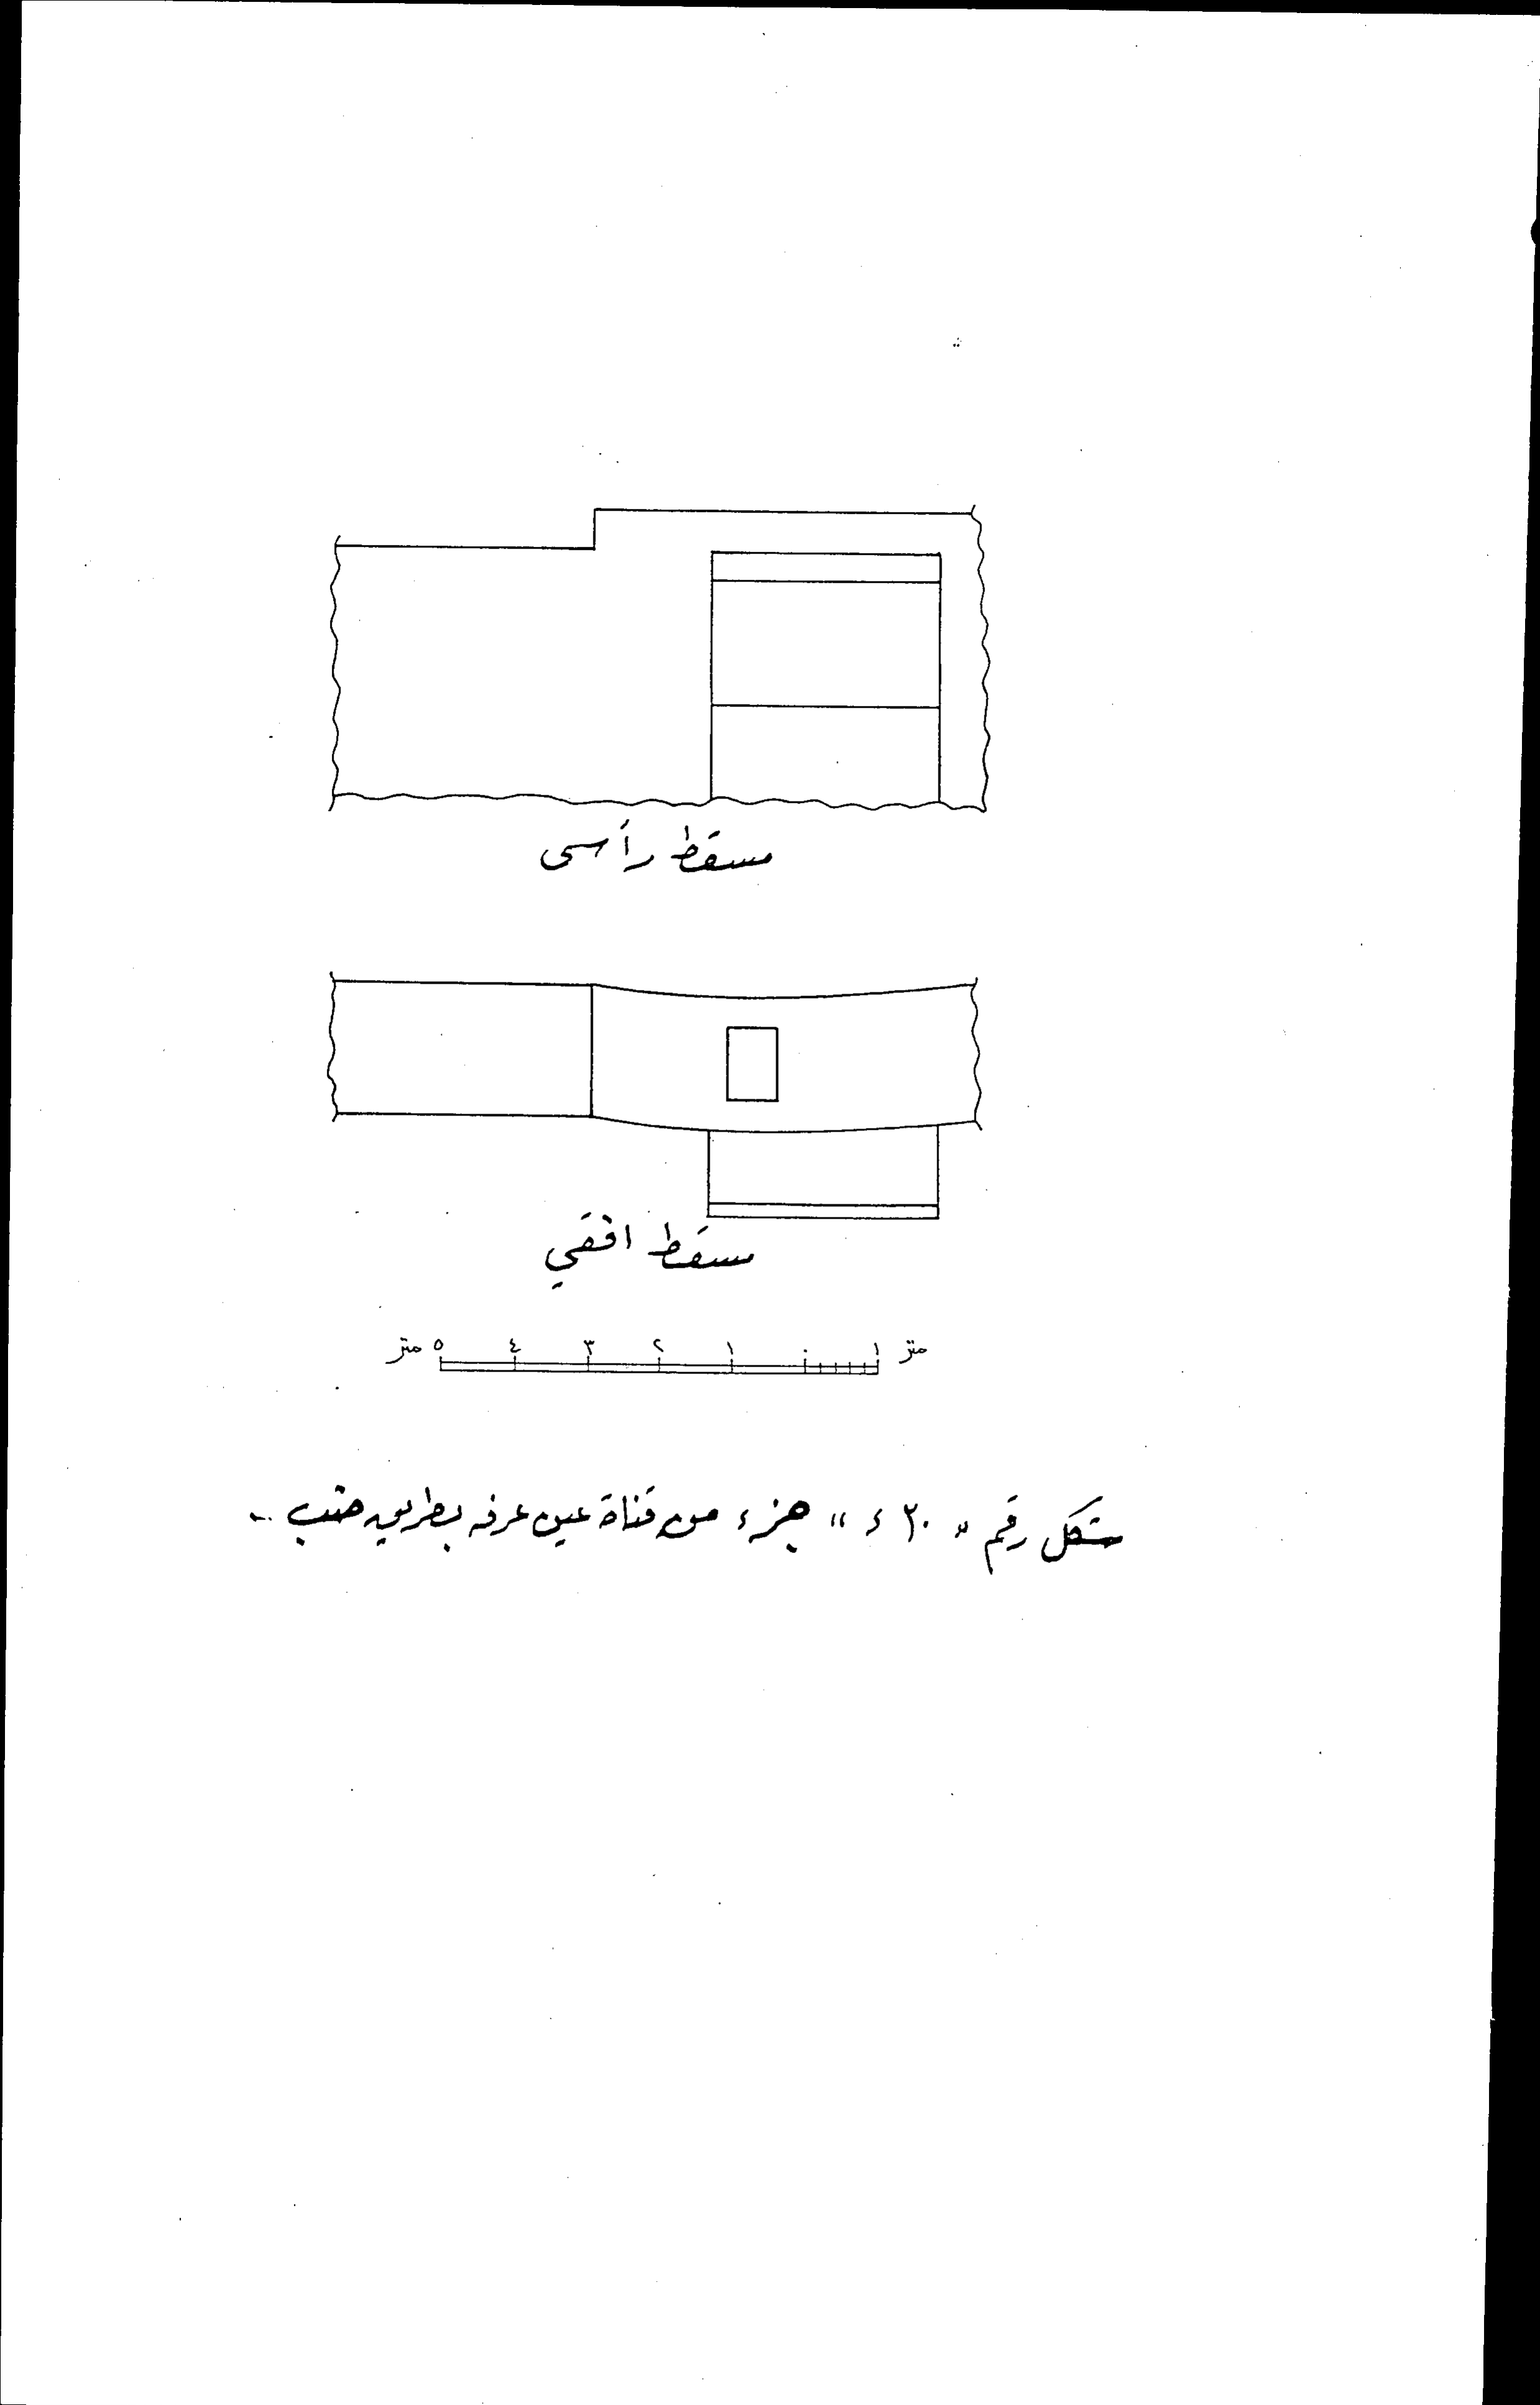 مسقط رأسى
مسقط افقي
متر ٥ ٤ ٣ ٢ ١ ٠ ١ متر
شكل رقم " ٢٠ د " جزء من قناة عين عرفه بطريق ضب ..